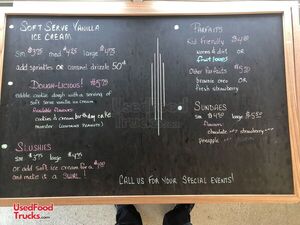 SOFT SERVE VANILLA
ICE CREAM
sm $3.75 med $4.25 large $4.75
add sprinkles or caramel drizzle 50¢
DOUGH-LICIOUS!
edible cookie dough with a serving of
soft serve vanilla ice cream
Available flavours:
cookies & cream birthday cake
monster
SLUSHIES
sm $3.75 large
or add soft ice cream for a
and make it a SWIRL!
PARFAITS
Kid friendly
worms & dirt or
fruit loops
Other Parfaits
brownie oreo OR
fresh strawberry
SUNDAES
sm large
flavours
chocolate strawberry
pineapple
CALL US FOR YOUR SPECIAL EVENTS!
UsedFood
Trucks.com